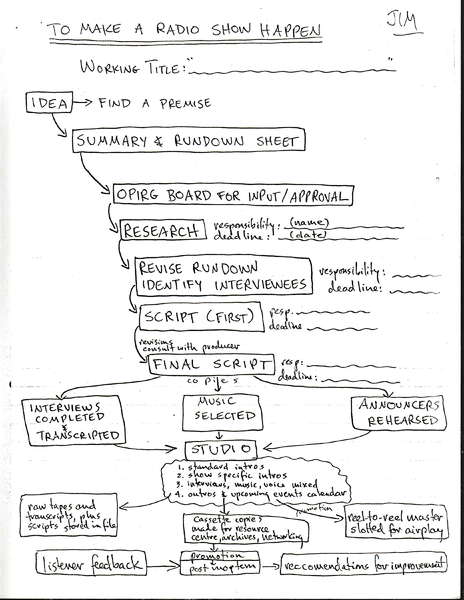 JIM
TO MAKE A RADIO SHOW HAPPEN
WORKING TITLE: " "
IDEA → FIND A PREMISE
SUMMARY & RUNDOWN SHEET
OPIRG BOARD FOR INPUT/APPROVAL
RESEARCH
responsibility: (name)
deadline: (date)
REVISE RUNDOWN
IDENTIFY INTERVIEWEES
responsibility:
deadline:
SCRIPT (FIRST)
resp.
deadline
revisions
consult with producer
FINAL SCRIPT
resp:
deadline:
copies
INTERVIEWS
COMPLETED
&
TRANSCRIPTED
MUSIC
SELECTED
ANNOUNCERS
REHEARSED
STUDIO
1. standard intros
2. show specific intros
3. interviews, music, voice mixed
4. outros & upcoming events calendar
raw tapes and
transcripts, plus
scripts stored in file
cassette copies
made for resource
centre, archives, networking
promotion
reel-to-reel master
slotted for airplay
listener feedback
promotion
post moptem
reccomendations for improvement